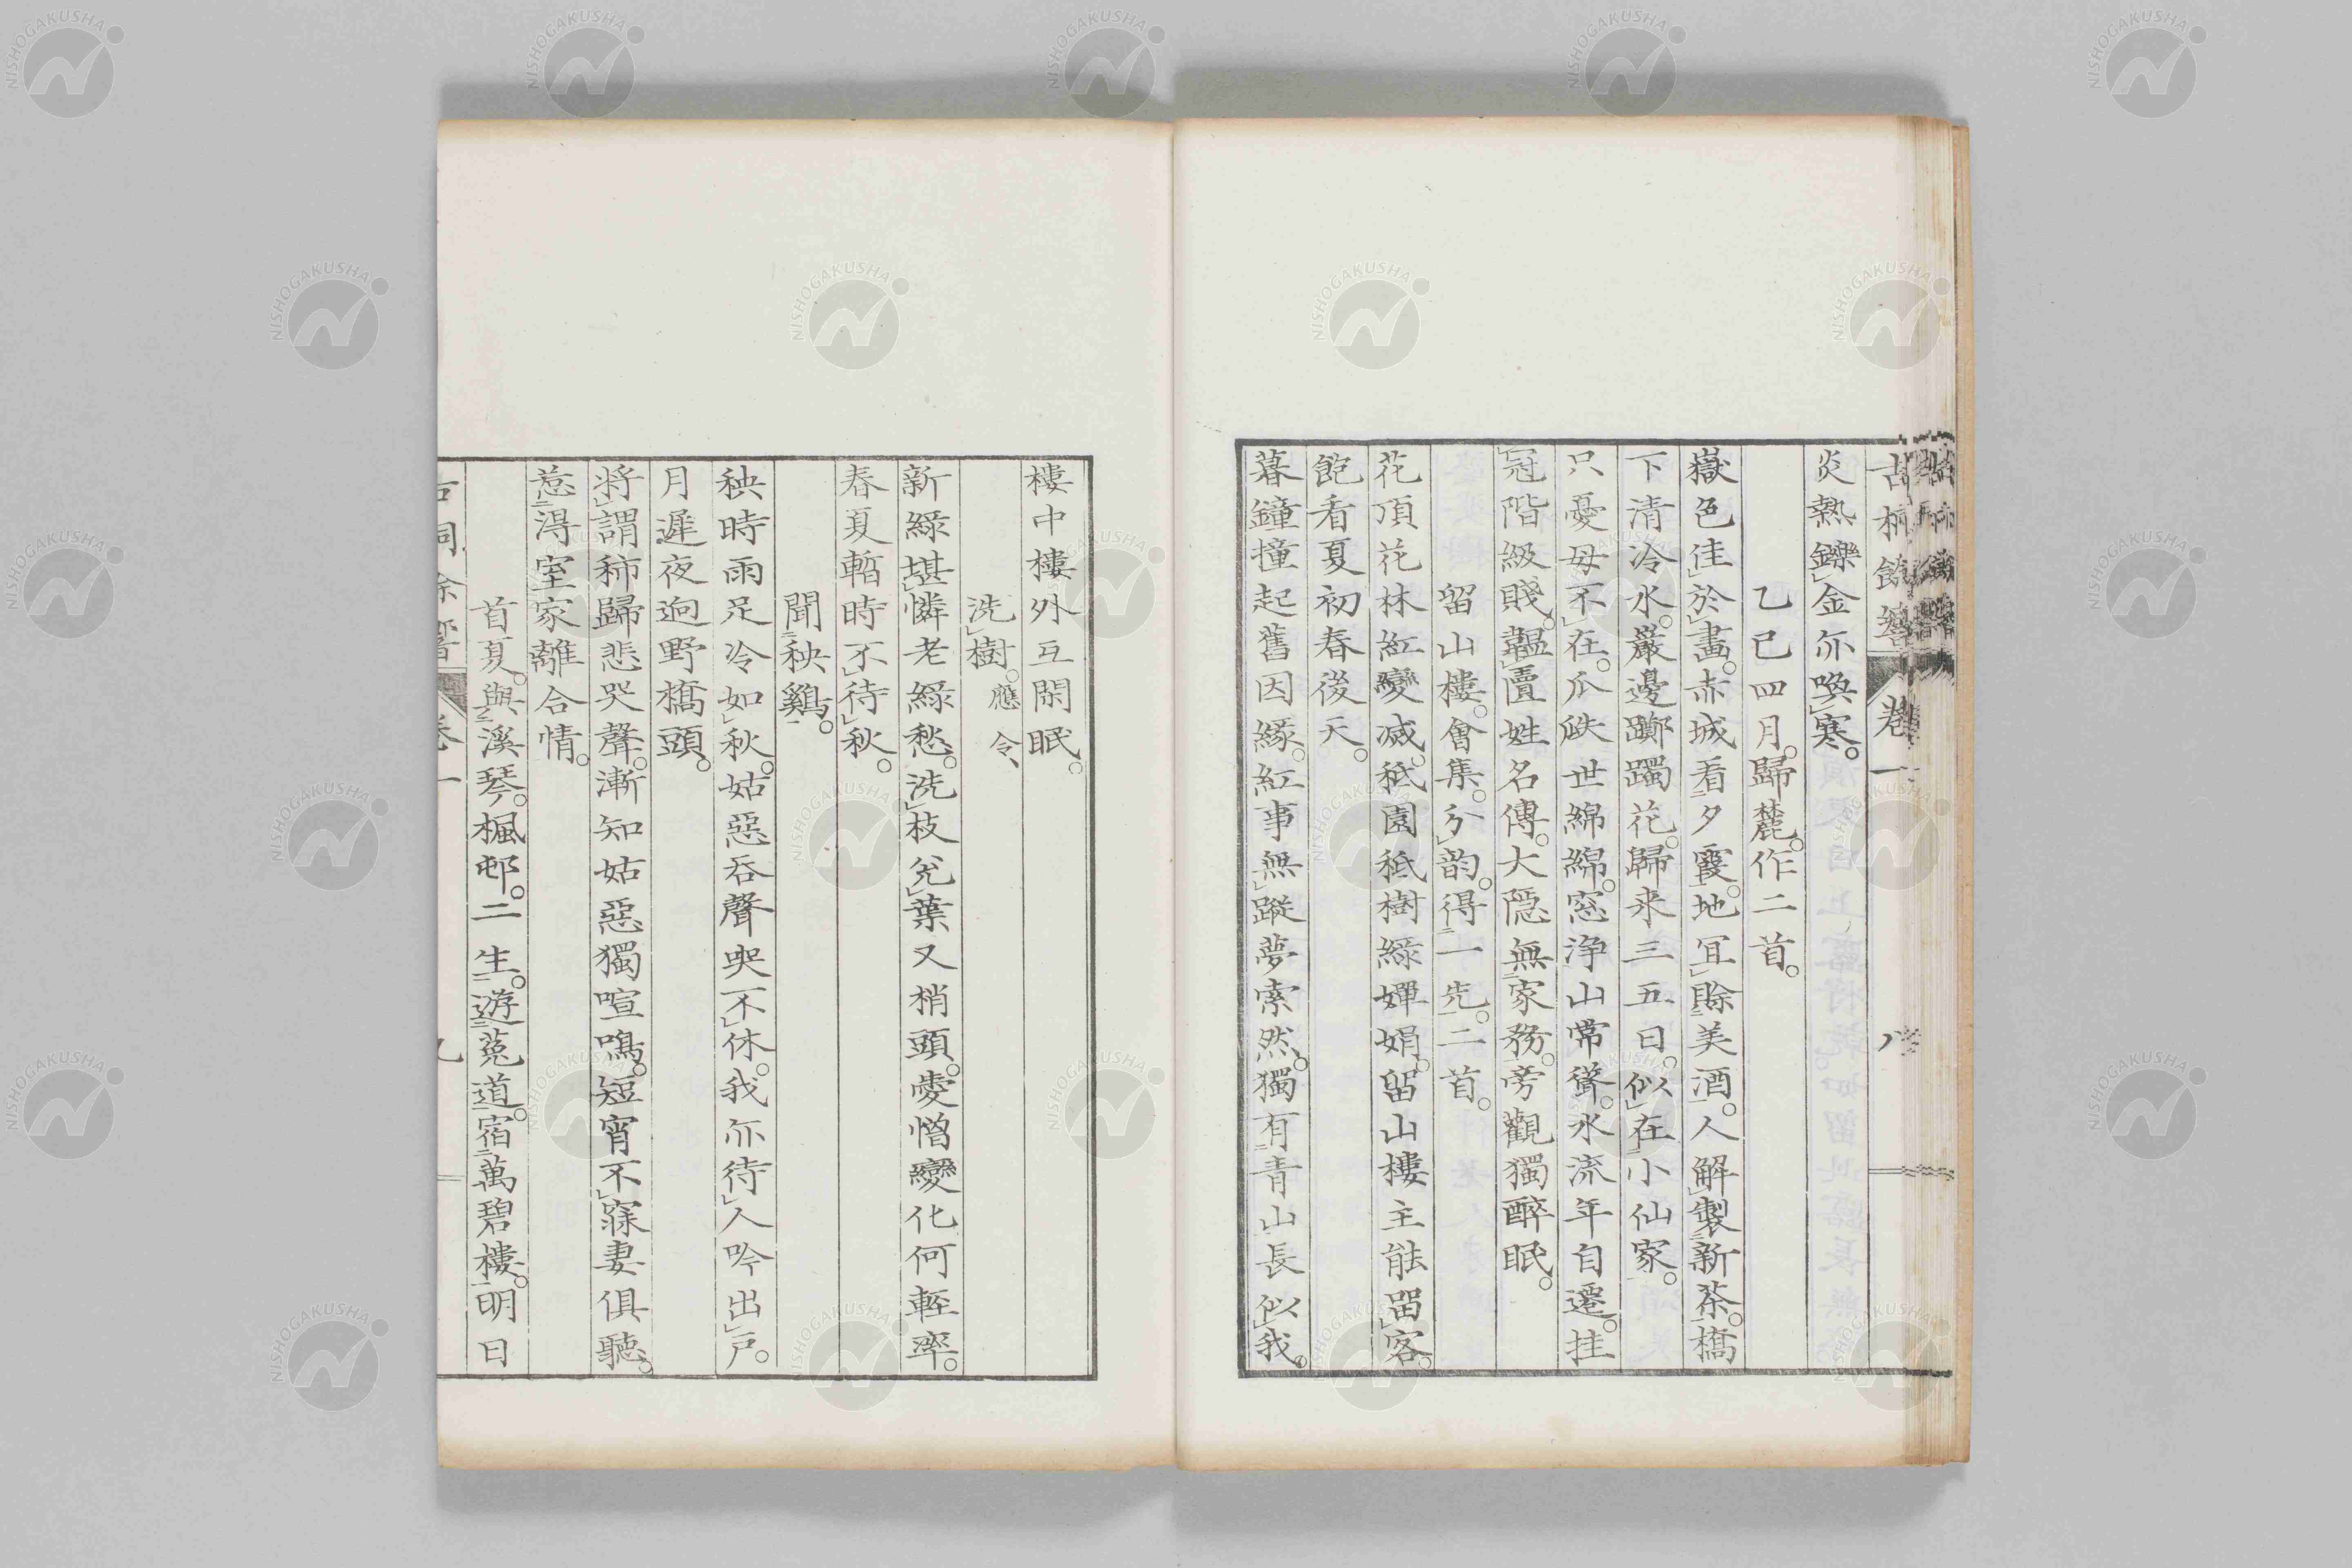 炎熱鑠金亦喚寒。
乙巳四月。歸麓。作二首。
嶽色佳於畫。赤城看夕霞。地冝賒美酒。人解製新茶。橋
下清冷水。巖邊躑躅花。歸来三五日。似在小仙家。
只憂毋不在。瓜瓞世綿綿。窓浄山常聳。水流年自遷。挂
冠階級賤。韞匵姓名傳。大隠無家務。旁觀獨醉眠。
留山樓。會集。分韵。得一先。二首。
花頂花林紅變滅。秪園秪樹緑嬋娟。留山樓主能留客。
飽看夏初春後天。
暮鐘撞起舊因縁。紅事無蹤夢索然。獨有青山長似我。
樓中樓外互閑眠。
洗樹。應令、
新緑堪憐老緑愁。洗枝兊葉又梢頭。愛憎變化何輕率。
春夏暫時不待秋。
聞秧鷄。
秧時雨足冷如秋。姑惡呑聲哭不休。我亦待人吟出戸。
月遲夜逈野橋頭。
將謂秭歸悲哭聲。漸知姑惡獨喧鳴。短宵不寐妻倶聽。
惹得室家離合情。
首夏。與溪琴。楓邨。二生。遊菟道。宿萬碧樓。明日
卷一
NISHOGAKUSHA